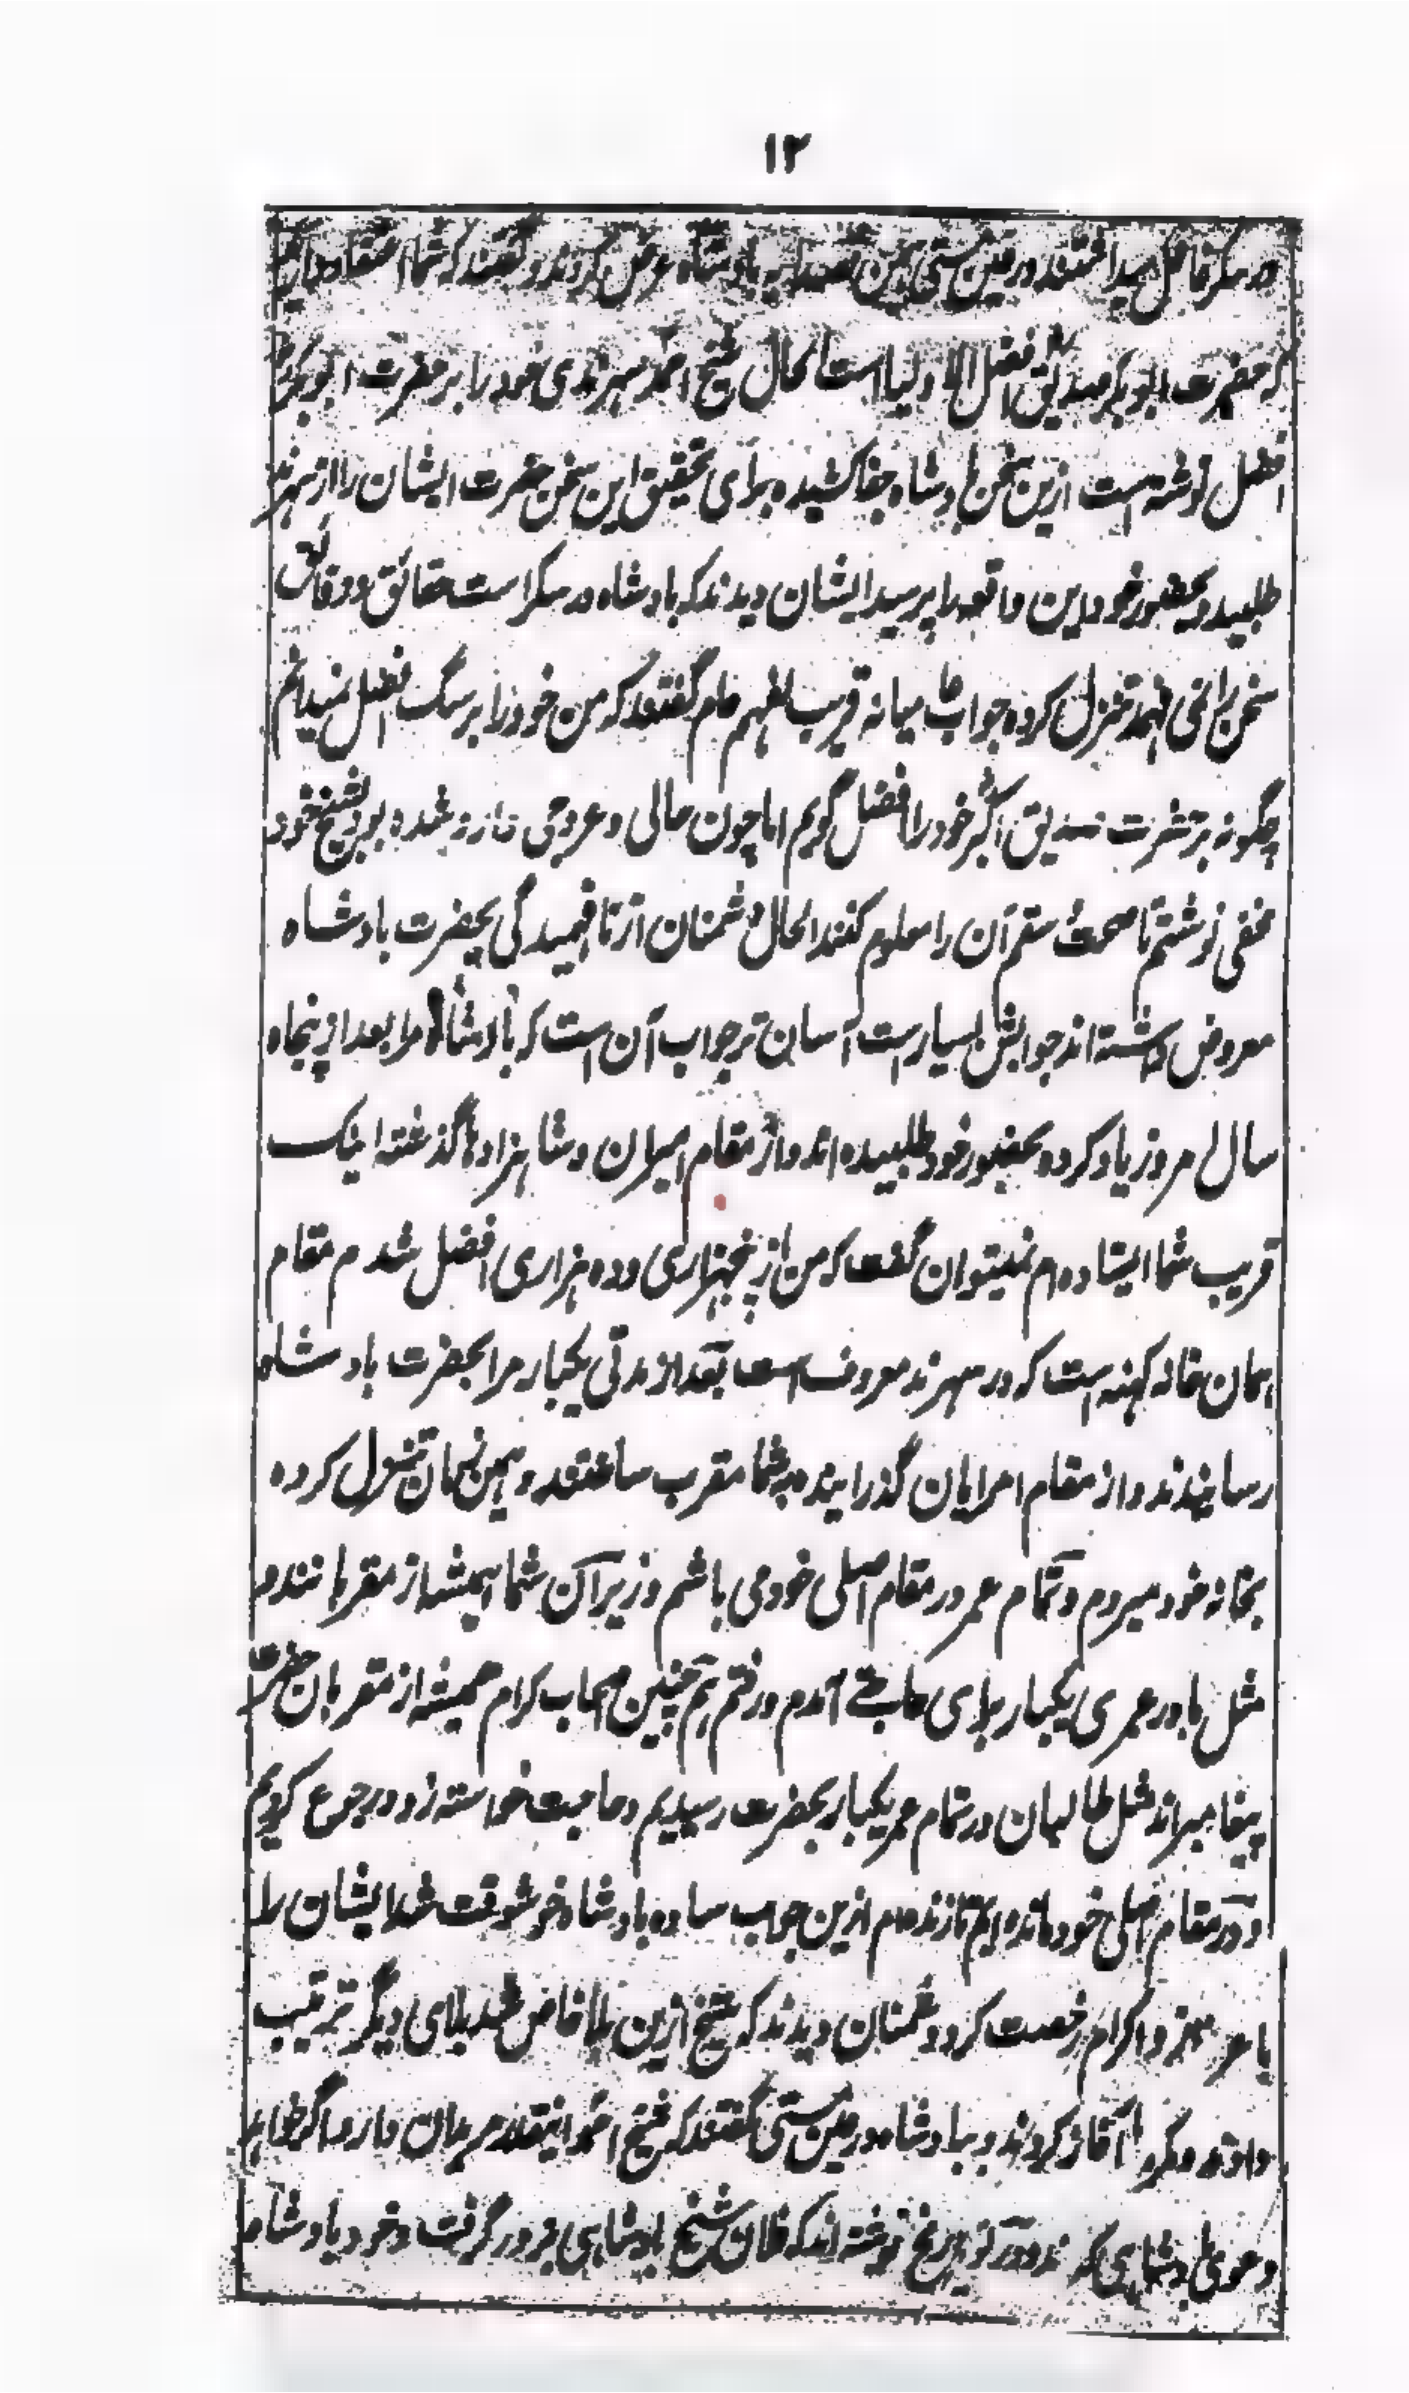 ۱۲
در سکر غافل پیدا در عین مستی همین بادشاه عرض کردند و گفتند که شما اعتقاد دارید
که حضرت ابوبکر صدیق افضل اولیا است الحال شیخ احمد سهرندی خود را بر حضرت ابوبکر
افضل نوشته است ازین سخن بادشاه جفا کشیده برای تحقیق این سخن حضرت ایشان را از سهرند
طلبید و بحضور خود این واقعه را پرسید ایشان دیدند که بادشاه در سکر است حقائق و دقائق
سخن را نمی فهمد تنزل کرده جواب میانه قریب لفهم عام گفتند که من خود را بر سگ افضل نمیدانم
چگونه بر حضرت صدیق اکبر خود را افضل گویم اما چون حالی و عروجی شده بود بشیخ خود
مخفی نوشتم تا صحت سقم آن را معلوم کنند الحال دشمنان از نافهمیدگی بحضرت بادشاه
معروض داشته اند جوابش بسیار است آسان تر جواب آن است که بادشاه مرا بعد از پنجاه
سال امروز یاد کرده بحضور خود طلبیده اند و از مقام امیران و شاهزادها گذشته اینک
قریب شما ایستاده ام نمیتوان گفت که من از پنجهزاری و ده هزاری افضل شدم مقام
همان خانه کهنه است که در سهرند معروف است بعد از مدتی یکبار مرا بحضرت بادشاه
رسانیدند و از مقام امرایان گذرانیده بشما مقرب ساختند و همین زمان تنزل کرده
بخانه خود میروم و تمام عمر در مقام اصلی خود می باشم وزیران شما همیشه از مقربانند و ما
مثل ما در عمری یکبار برای حاجتے آمدم و رفتم همچنین صحاب کرام همیشه از مقربان حضرت
پیغامبراند مثل طالبان در تمام عمر یکبار بحضرت رسیدیم و حاجت خواسته زود رجوع کردیم
و در مقام اصلی خود مانده ایم تا زنده ام ازین جواب ساده بادشاه خوشوقت شد ایشان را
با اکرام رخصت کرد دشمنان دیدند که شیخ ازین بلا خلاص شد بلای دیگر ترتیب
دادند و مکر آغاز کردند و ببادشاه در عین مستی گفتند که شیخ احمد اینقدر مریدان دارد اگر خواهد
دعوی بادشاهی کند و در تواریخ نوشته اند که فلان شیخ بادشاهی بزور گرفت و خود بادشاه